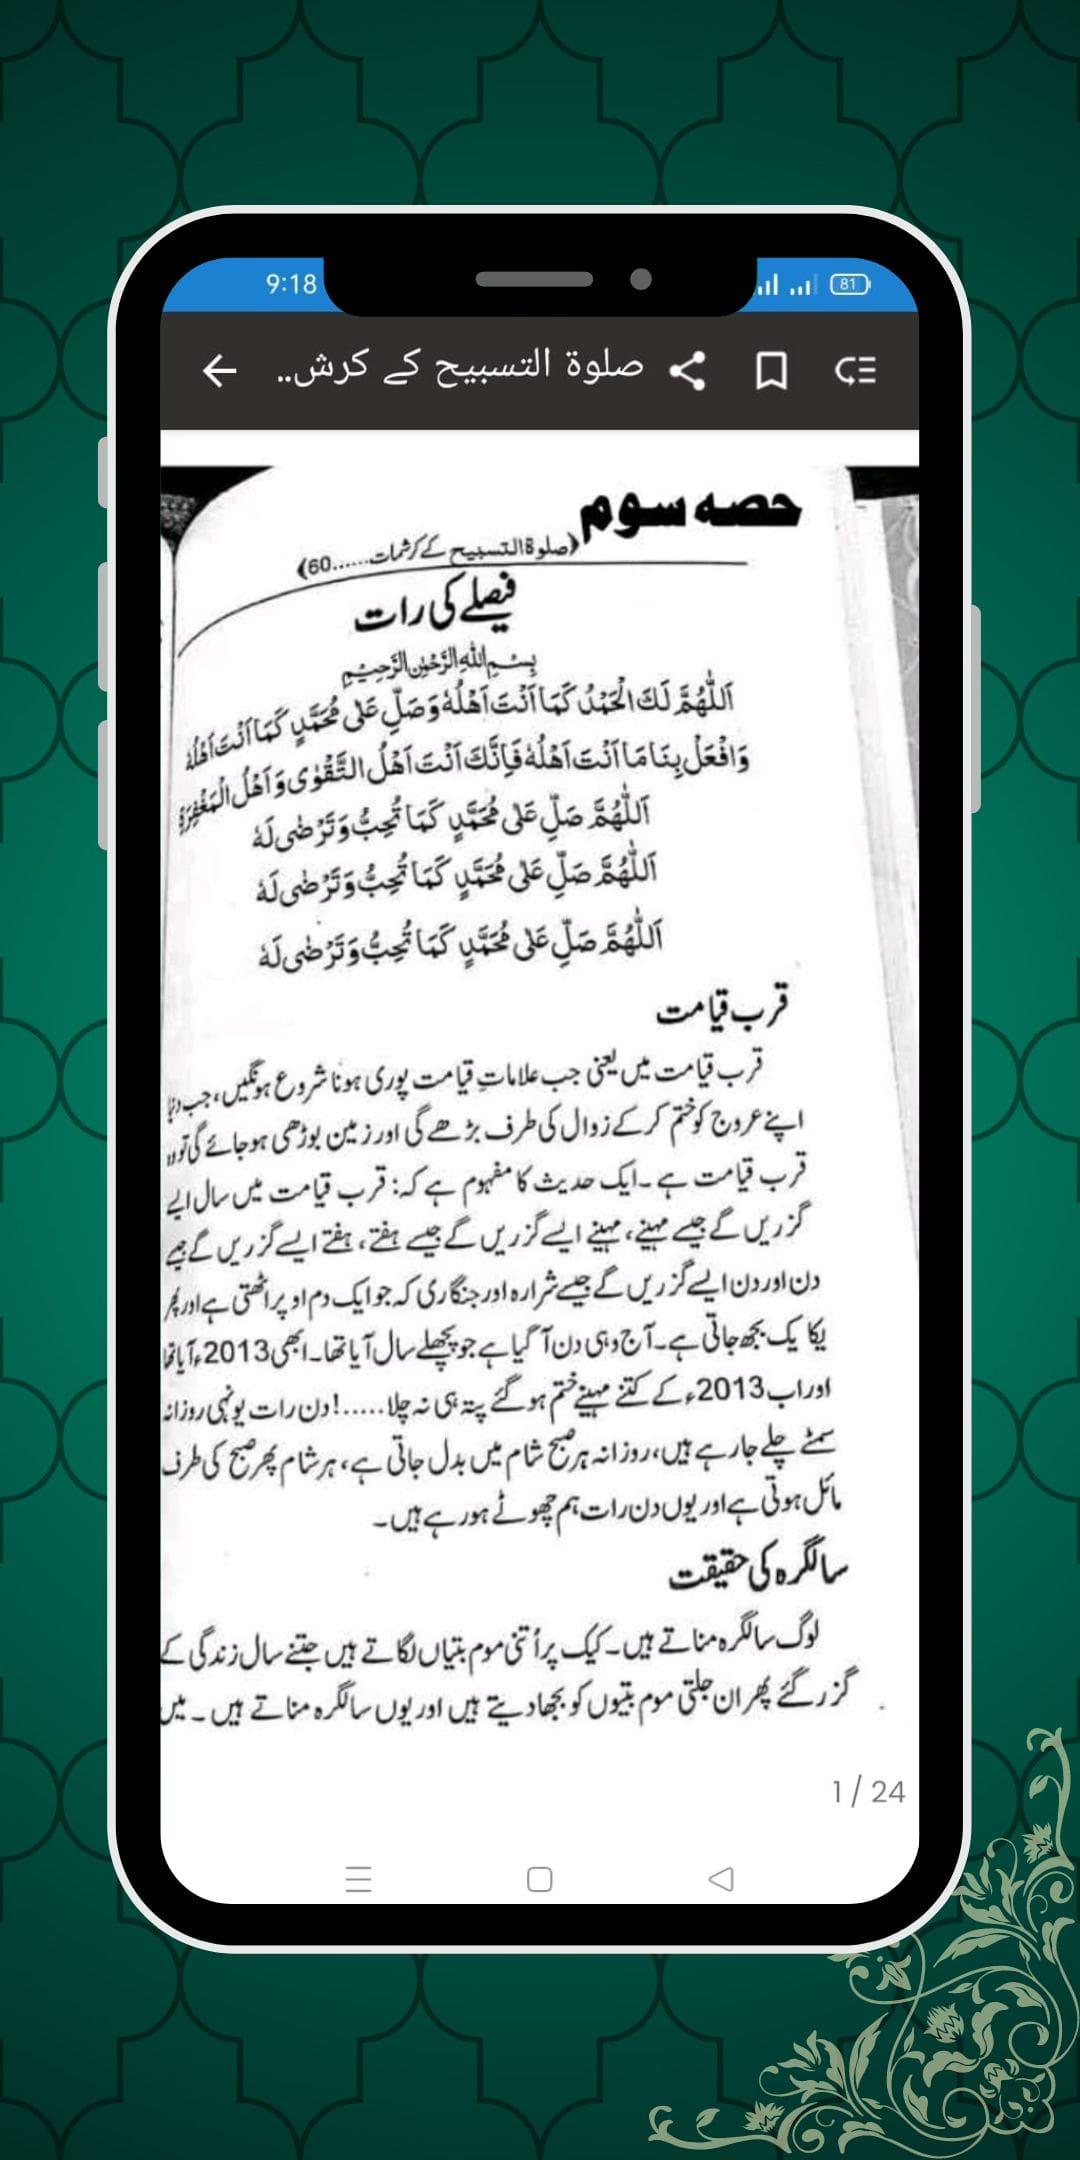 9:18
81
صلوة التسبيح کے کرش..
حصہ سوم
﴿صلوۃ التسبیح کے کرشمات......60﴾
فیصلے کی رات
بِسْمِ اللهِ الرَّحْمٰنِ الرَّحِیْمِ
اَللّٰهُمَّ لَكَ الْحَمْدُ كَمَا اَنْتَ اَهْلُهٗ وَصَلِّ عَلٰی مُحَمَّدٍ كَمَا اَنْتَ اَهْلُهٗ
وَافْعَلْ بِنَا مَا اَنْتَ اَهْلُهٗ فَاِنَّكَ اَنْتَ اَهْلُ التَّقْوٰی وَ اَهْلُ الْمَغْفِرَةِ
اَللّٰهُمَّ صَلِّ عَلٰی مُحَمَّدٍ كَمَا تُحِبُّ وَ تَرْضٰی لَهٗ
اَللّٰهُمَّ صَلِّ عَلٰی مُحَمَّدٍ كَمَا تُحِبُّ وَ تَرْضٰی لَهٗ
اَللّٰهُمَّ صَلِّ عَلٰی مُحَمَّدٍ كَمَا تُحِبُّ وَ تَرْضٰی لَهٗ
قرب قیامت
قرب قیامت میں یعنی جب علاماتِ قیامت پوری ہونا شروع ہونگیں، جب دنیا
اپنے عروج کو ختم کر کے زوال کی طرف بڑھے گی اور زمین بوڑھی ہو جائے گی تو وہ
قرب قیامت ہے۔ ایک حدیث کا مفہوم ہے کہ: قرب قیامت میں سال ایسے
گزریں گے جیسے مہینے، مہینے ایسے گزریں گے جیسے ہفتے، ہفتے ایسے گزریں گے جیسے
دن اور دن ایسے گزریں گے جیسے شرارہ اور چنگاری کہ جو ایک دم اوپر اٹھتی ہے اور پھر
یکا یک بجھ جاتی ہے۔ آج وہی دن آ گیا ہے جو پچھلے سال آیا تھا۔ ابھی 2013ء آیا تھا
اور اب 2013ء کے کتنے مہینے ختم ہو گئے پتہ ہی نہ چلا.....! دن رات یونہی روزانہ
سمٹے چلے جا رہے ہیں، روزانہ ہر صبح شام میں بدل جاتی ہے، ہر شام پھر صبح کی طرف
مائل ہوتی ہے اور یوں دن رات ہم چھوٹے ہو رہے ہیں۔
سالگرہ کی حقیقت
لوگ سالگرہ مناتے ہیں۔ کیک پر اُتنی موم بتیاں لگاتے ہیں جتنے سال زندگی کے
گزر گئے پھر ان جلتی موم بتیوں کو بجھا دیتے ہیں اور یوں سالگرہ مناتے ہیں۔ میں
1 / 24